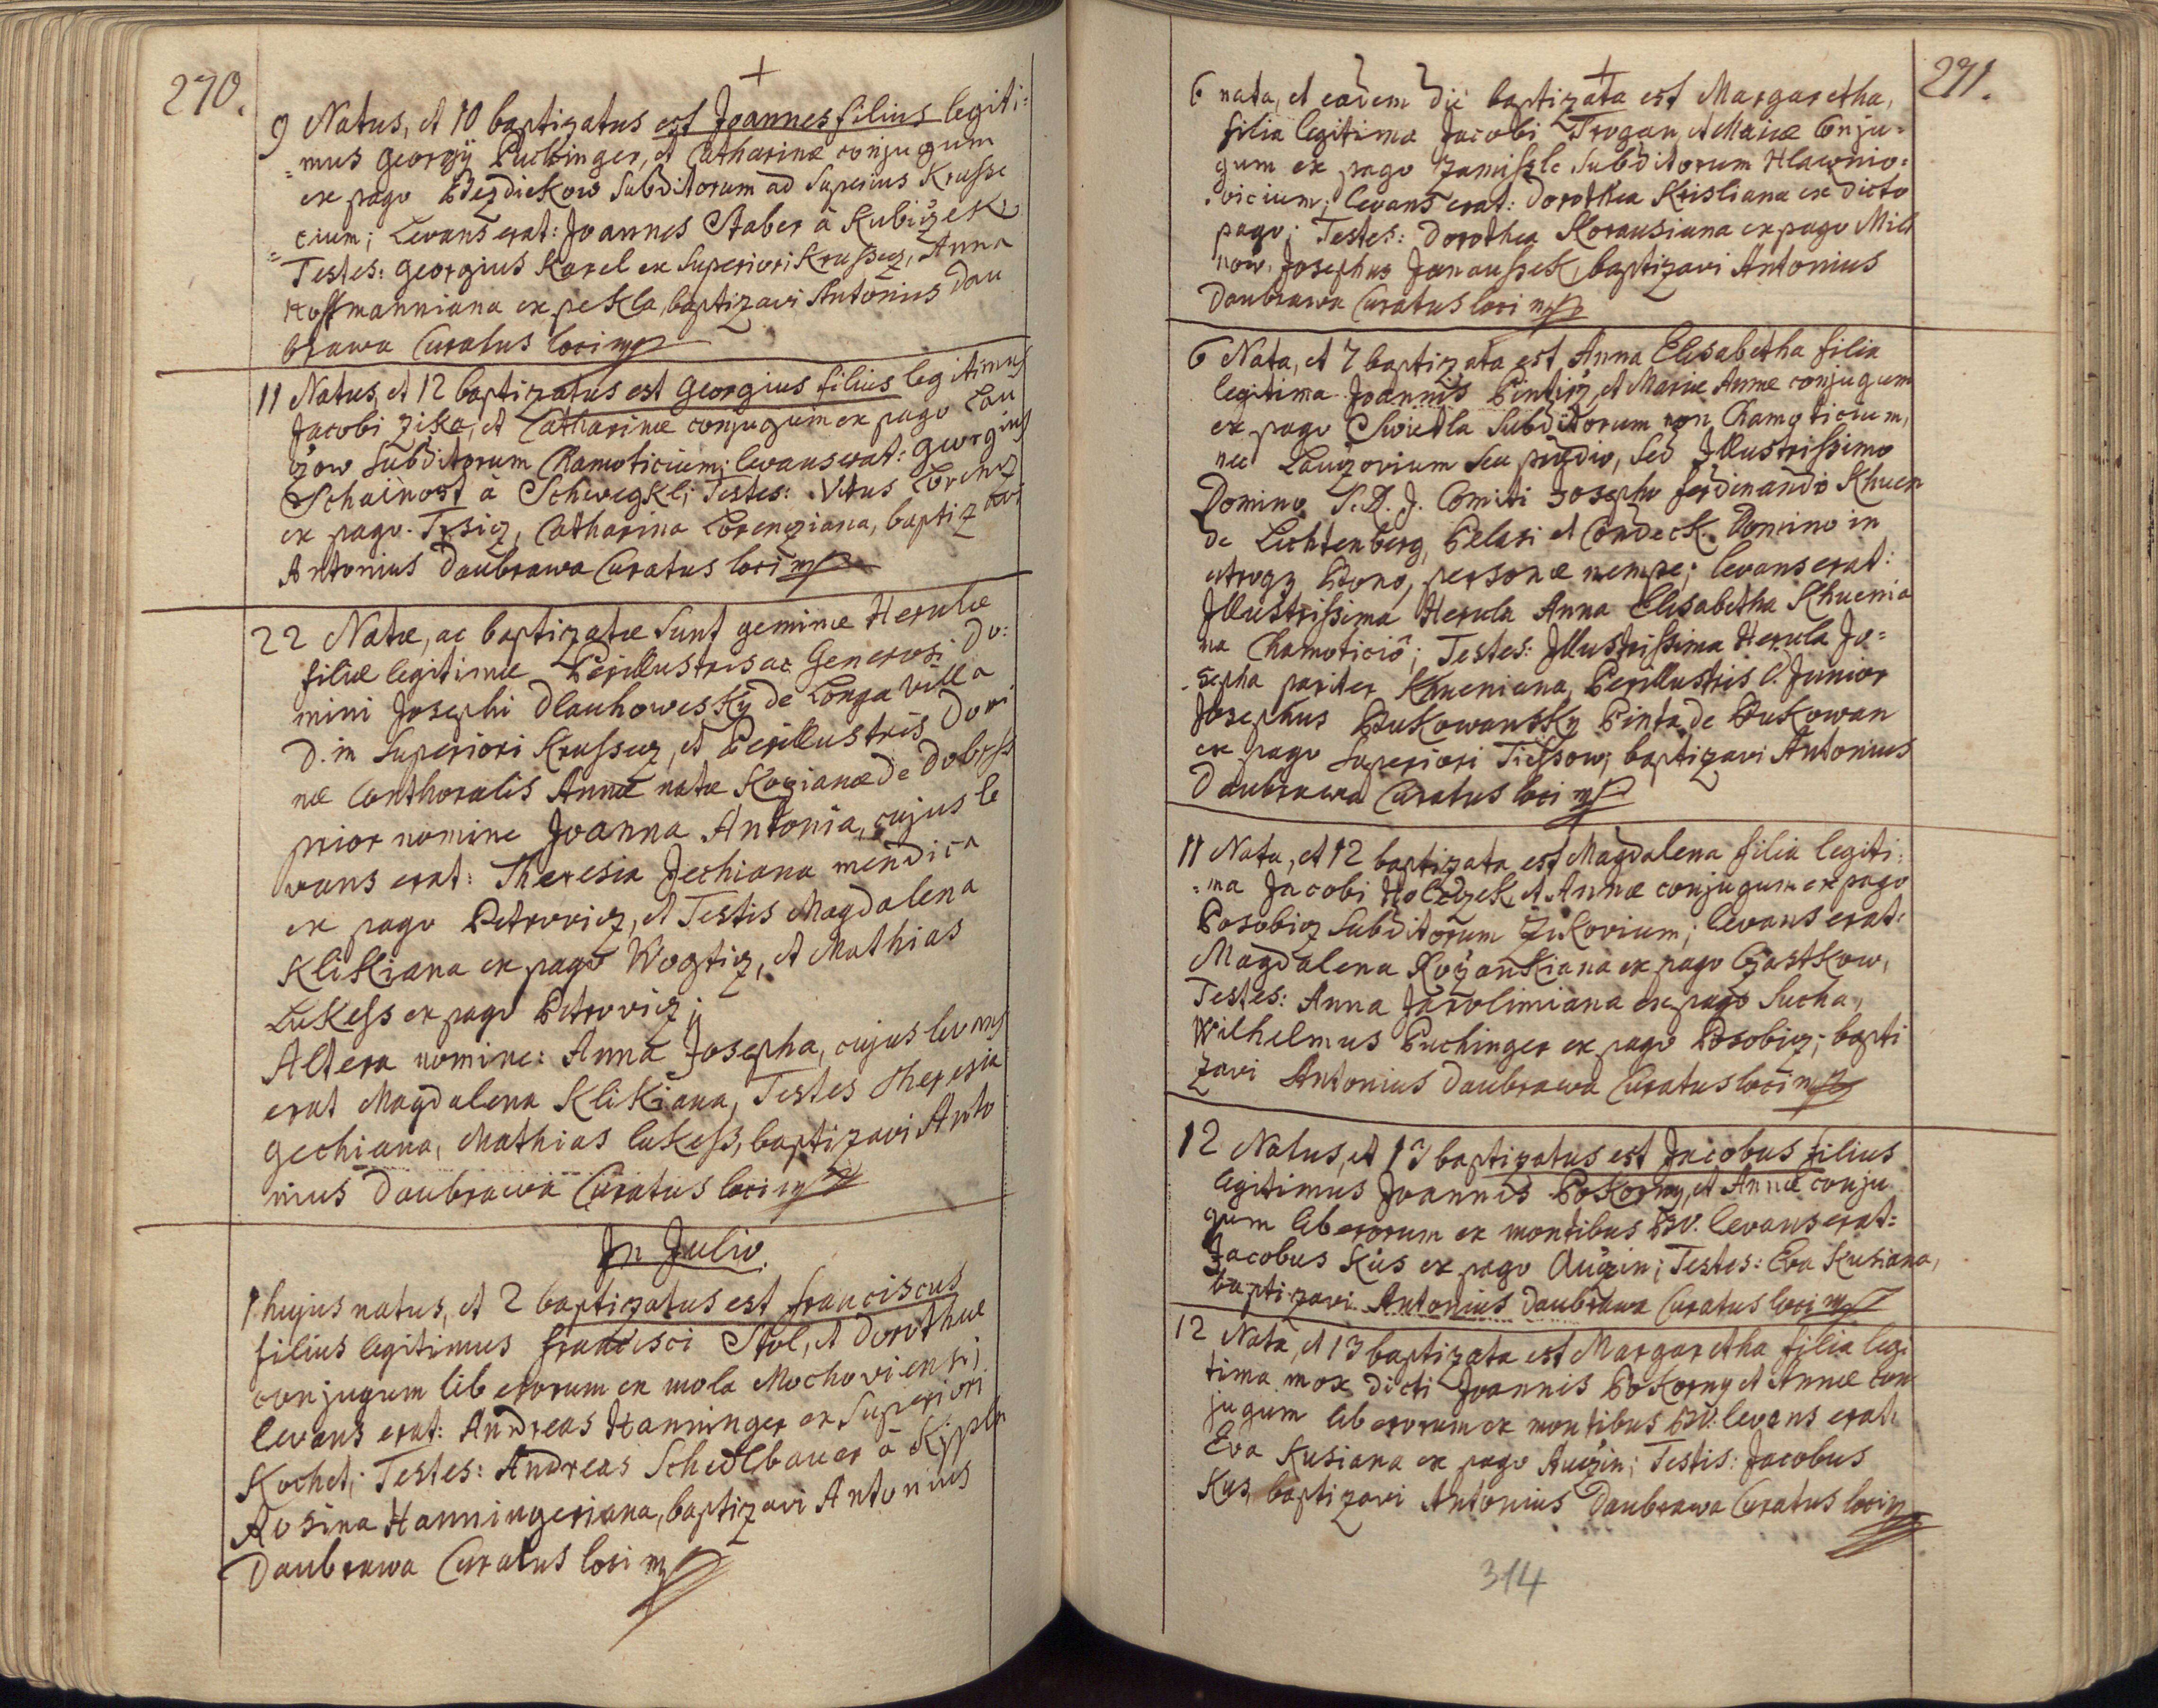 270.
9 Natus, et 10 baptizatus est Joannes filius legiti:
=mus Georgÿ Puchinger, et Catharinæ conjugum
ex pago Bezdiekow Subditorum ad Superius Krusse
=cium; Levans erat: Joannes Staber à Kubiczek
Testes: Georgius Karel ex Superiori Krussecz, Anna
Hoffmanniana ex pekla, baptizavi Antonius Dau
brawa Curatus loci mp
11 Natus, et 12 baptizatus est Georgius filius legitimus
Jacobi Zika, et Catharinæ conjugum ex pago Lau
czow Subditorum Chamoticium; levans erat: Georgius
Schainost à Schwegkl; Testes: Vitus Lorencz
ex pago Trsicz, Catharina Lorencziana, baptizavi
Antonius Daubrawa Curatus loci mp
22 Natæ, ac baptizatæ sunt geminæ Herulæ
filiæ legitimæ Perillustris ac Generosi Do:
mini Josephi Dlauhowesky de Longa Villa
D. in Superiori Krussecz, et Perillustris Domi
næ Conthoralis Annæ natæ Kozianæ de Dobrss
prior nomine Joanna Antonia, cujus le
vans erat: Theresia Jechiana mendica
ex pago Petrowicz, et Testis Magdalena
Klikiana ex pago Wogticz, et Mathias
Lukess ex pago Petrovicz;
Altera nomine: Anna Josepha, cujus levans
erat Magdalena Klikiana, Testes Theresia
Gechiana, Mathias lukess, baptizavi Anto
nius Daubrawa Curatus loci mp
In Julio.
1 hujus natus, et 2 baptizatus est franciscus
filius legitimus francisci Stol, et Dorotheæ
conjugum liberorum ex mola Mochoviensi;
levans erat: Andreas Hanninger ex Superiori
Kochet; Testes: Andreas Schedlbauer à Kippln
Rosina Hanningeriana, baptizavi Antonius
Daubrawa Curatus loci mp
271.
6 nata, et eadem die baptizata est Margaretha,
filia legitima Jacobi Trogan, et Mariæ Conju=
gum ex pago Zamissle Subditorum Hlawnio=
vicium; levans erat: Dorothea Kristiana ex dicto
pago; Testes: Dorothea Korausiana ex pago Mil
now, Josephus Janaussek, baptizavi Antonius
Daubrawa Curatus loci mp
6 Nata, et 7 baptizata est Anna Elisabetha filia
legitima Joannis Pintirz, et Mariæ Annæ conjugum
ex pago Swietla Subditorum non Chamoticium,
nec Lauczovium seu prædio, sed Illustrissimo
Domino S.R.J. Comiti Josepho ferdinando Khuen
de Lichtenberg, Belasi et Condeck. Domino in
utroqz Bono, personæ nempe; levans erat:
Illustrissima Herula Anna Elisabetha Khuenia
na Chamoticiô; Testes: Illustrissima Herula Jo=
sepha pariter Khueniana, Perillustris D. Junior
Josephus Bukowansky Pinta de Bukowan
ex pago Superiori Tiessow; baptizavi Antonius
Daubrawa Curatus loci mp
11 Nata, et 12 baptizata est Magdalena filia legiti:
=ma Jacobi Holeczek, et Annæ conjugum ex pago
Posobicz Subditorum Zikovium; levans erat:
Magdalena Rozankiana ex pago Czastkow,
Testes: Anna Jarolimiana ex pago Sucha,
Wilhelmus Puchinger ex pago Posobicz; bapti
zavi Antonius Daubrawa Curatus loci mp
12 Natus, et 13 baptizatus est Jacobus filius
legitimus Joannis Pokorny, et Annæ conju
gum liberorum ex montibus BV. levans erat:
Jacobus Kús ex pago Auczin; Testes: Eva Kusiana,
baptizavi Antonius Daubrawa Curatus loci mp
12 Nata, et 13 baptizata est Margaretha filia legi
tima mox dicti Joannis Pokorny et Annæ con
jugum liberorum ex montibus BV: levans erat:
Eva Kusiana ex pago Auczin; Testis: Jacobus
Kus, baptizavi Antonius Daubrawa Curatus loci mp
314